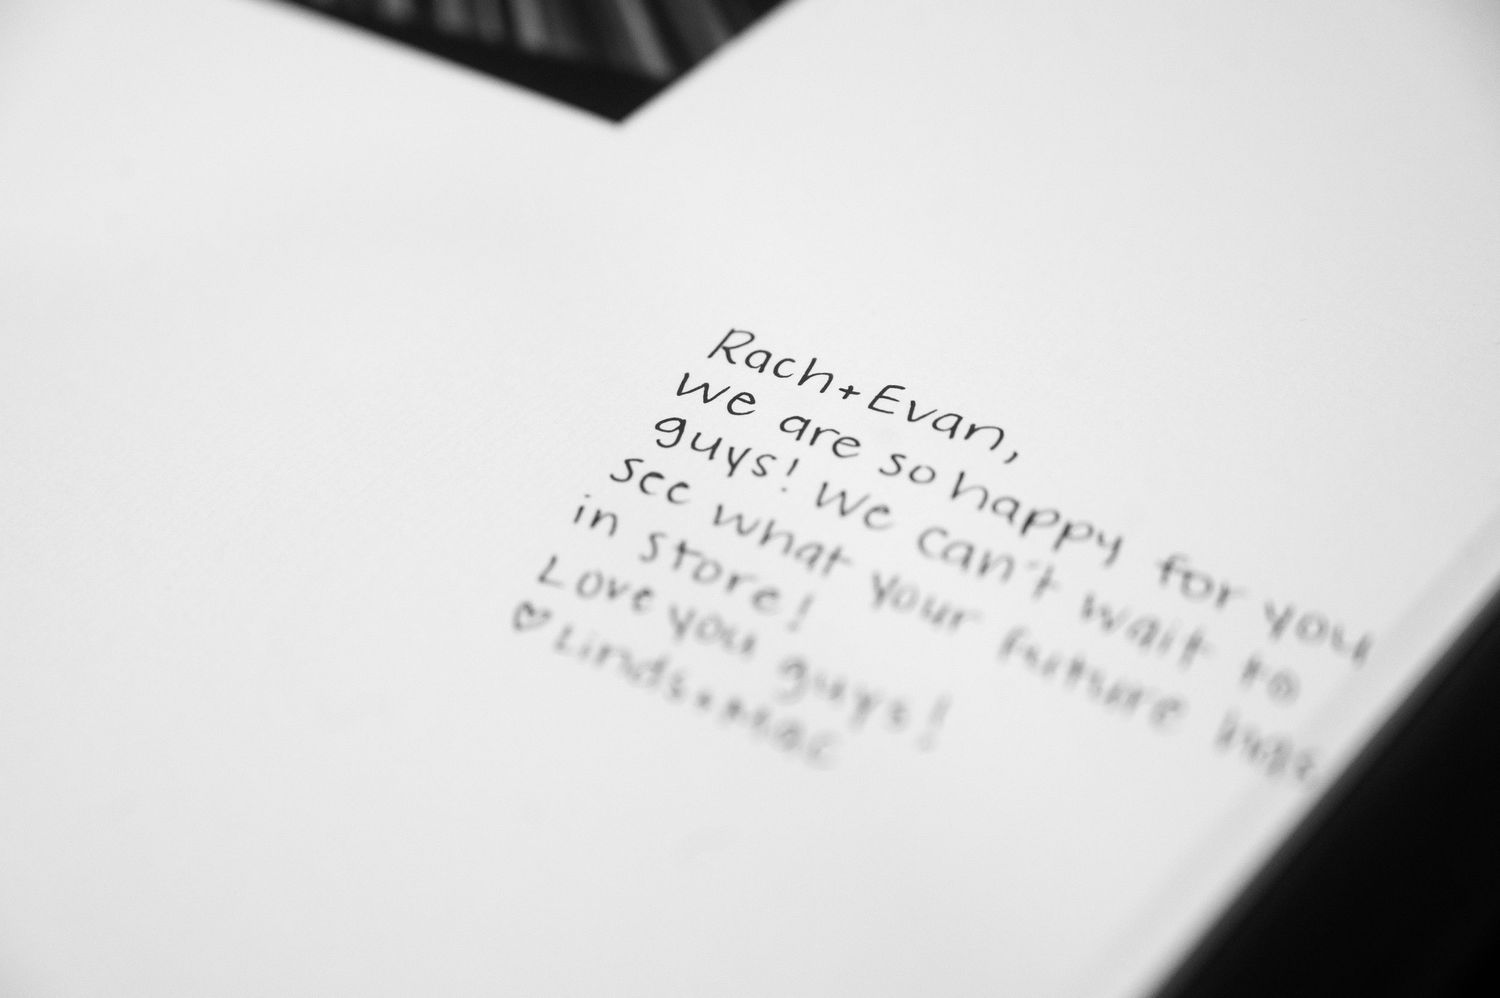 Rach + Evan,
We are so happy for you
guys! We can't wait to
see what your future has
in store!
Love you guys!
♡ Linds + Mac